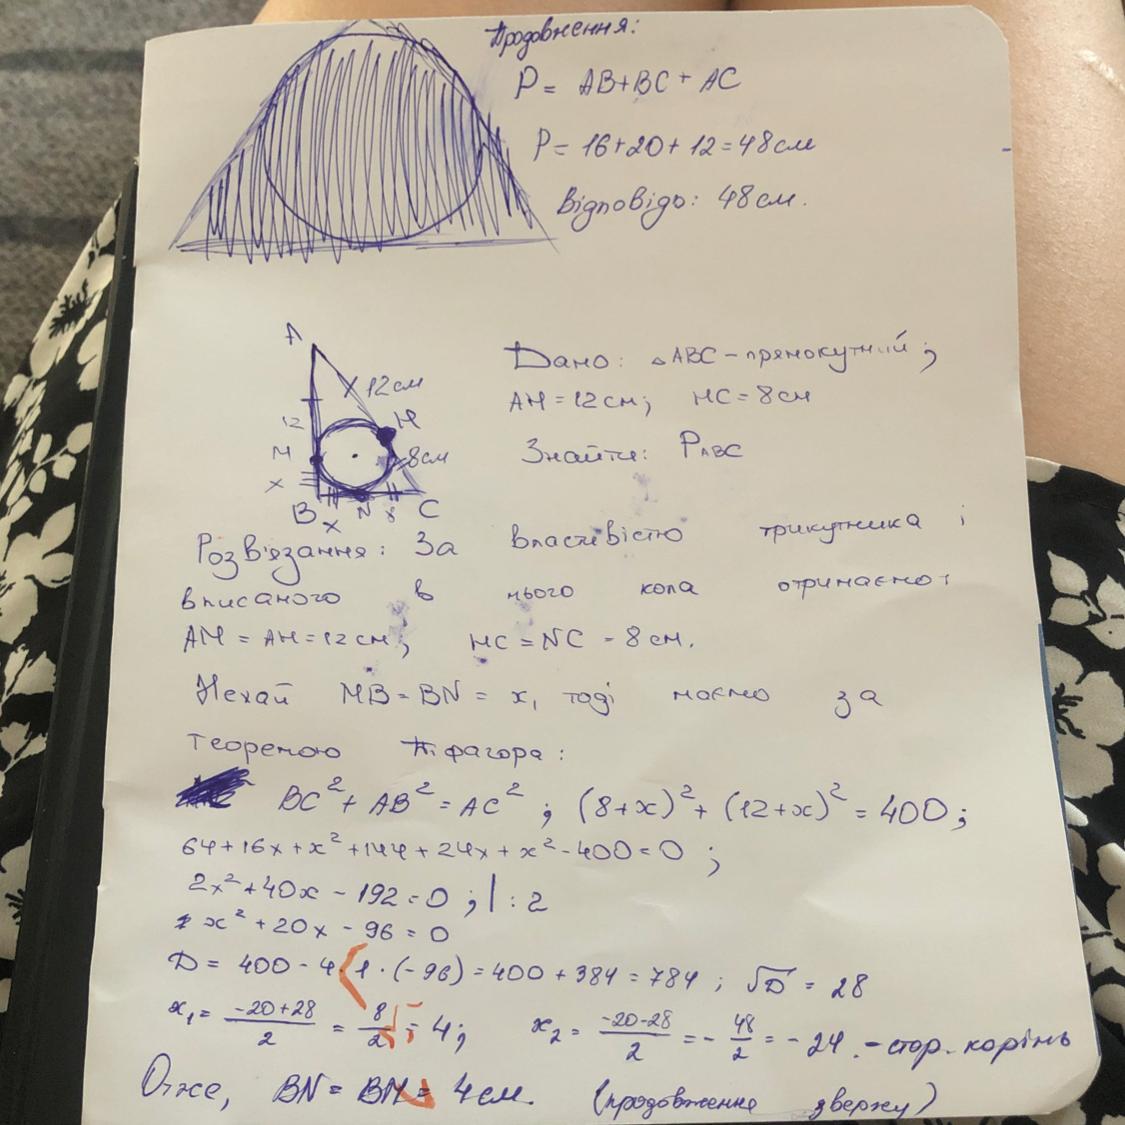 Продовження:
P = AB+BC+AC
P = 16+20+12=48см
Відповідь: 48см.
A
12см
12
H
M
8см
x
B
x
N
8
C
Дано: △ABC – прямокутний;
AH = 12см; HC = 8см
Знайти: PABC
Розв'язання: За властивістю трикутника і
вписаного в нього кола отримаємо:
AM = AH = 12см; HC = NC = 8см.
Нехай MB = BN = x, тоді маємо за
теоремою Піфагора:
BC² + AB² = AC²; (8+x)² + (12+x)² = 400;
64+16x+x²+144+24x+x²-400=0;
2x²+40x-192=0; |:2
x²+20x-96=0
D = 400-4·1·(-96)=400+384=784; √D = 28
x₁ = -20+28/2 = 8/2 = 4; x₂ = -20-28/2 = -48/2 = -24. - стор. корінь
Отже, BN = BM = 4см. (продовження зверху)